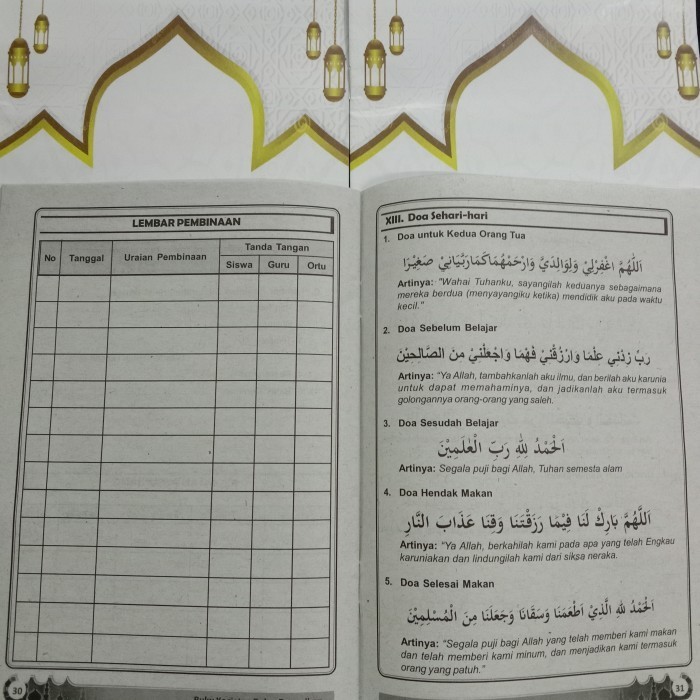 LEMBAR PEMBINAAN
No Tanggal Uraian Pembinaan Tanda Tangan
Siswa Guru Ortu
30
XIII. Doa Sehari-hari
1. Doa untuk Kedua Orang Tua
اَللّٰهُمَّ اغْفِرْلِيْ وَلِوَالِدَيَّ وَارْحَمْهُمَاكَمَارَبَّيَانِيْ صَغِيْرًا
Artinya: "Wahai Tuhanku, sayangilah keduanya sebagaimana
mereka berdua (menyayangiku ketika) mendidik aku pada waktu
kecil."
2. Doa Sebelum Belajar
رَبِّ زِدْنِي عِلْمًا وَارْزُقْنِيْ فَهْمًا وَاجْعَلْنِيْ مِنَ الصَّالِحِيْنَ
Artinya: "Ya Allah, tambahkanlah aku ilmu, dan berilah aku karunia
untuk dapat memahaminya, dan jadikanlah aku termasuk
golongannya orang-orang yang saleh.
3. Doa Sesudah Belajar
اَلْحَمْدُ لِلّٰهِ رَبِّ الْعٰلَمِيْنَ
Artinya: Segala puji bagi Allah, Tuhan semesta alam
4. Doa Hendak Makan
اَللّٰهُمَّ بَارِكْ لَنَا فِيْمَا رَزَقْتَنَا وَقِنَا عَذَابَ النَّارِ
Artinya: "Ya Allah, berkahilah kami pada apa yang telah Engkau
karuniakan dan lindungilah kami dari siksa neraka.
5. Doa Selesai Makan
اَلْحَمْدُ لِلّٰهِ الَّذِيْ اَطْعَمَنَا وَسَقَانَا وَجَعَلَنَا مِنَ الْمُسْلِمِيْنَ
Artinya: "Segala puji bagi Allah yang telah memberi kami makan
dan telah memberi kami minum, dan menjadikan kami termasuk
orang yang patuh."
31